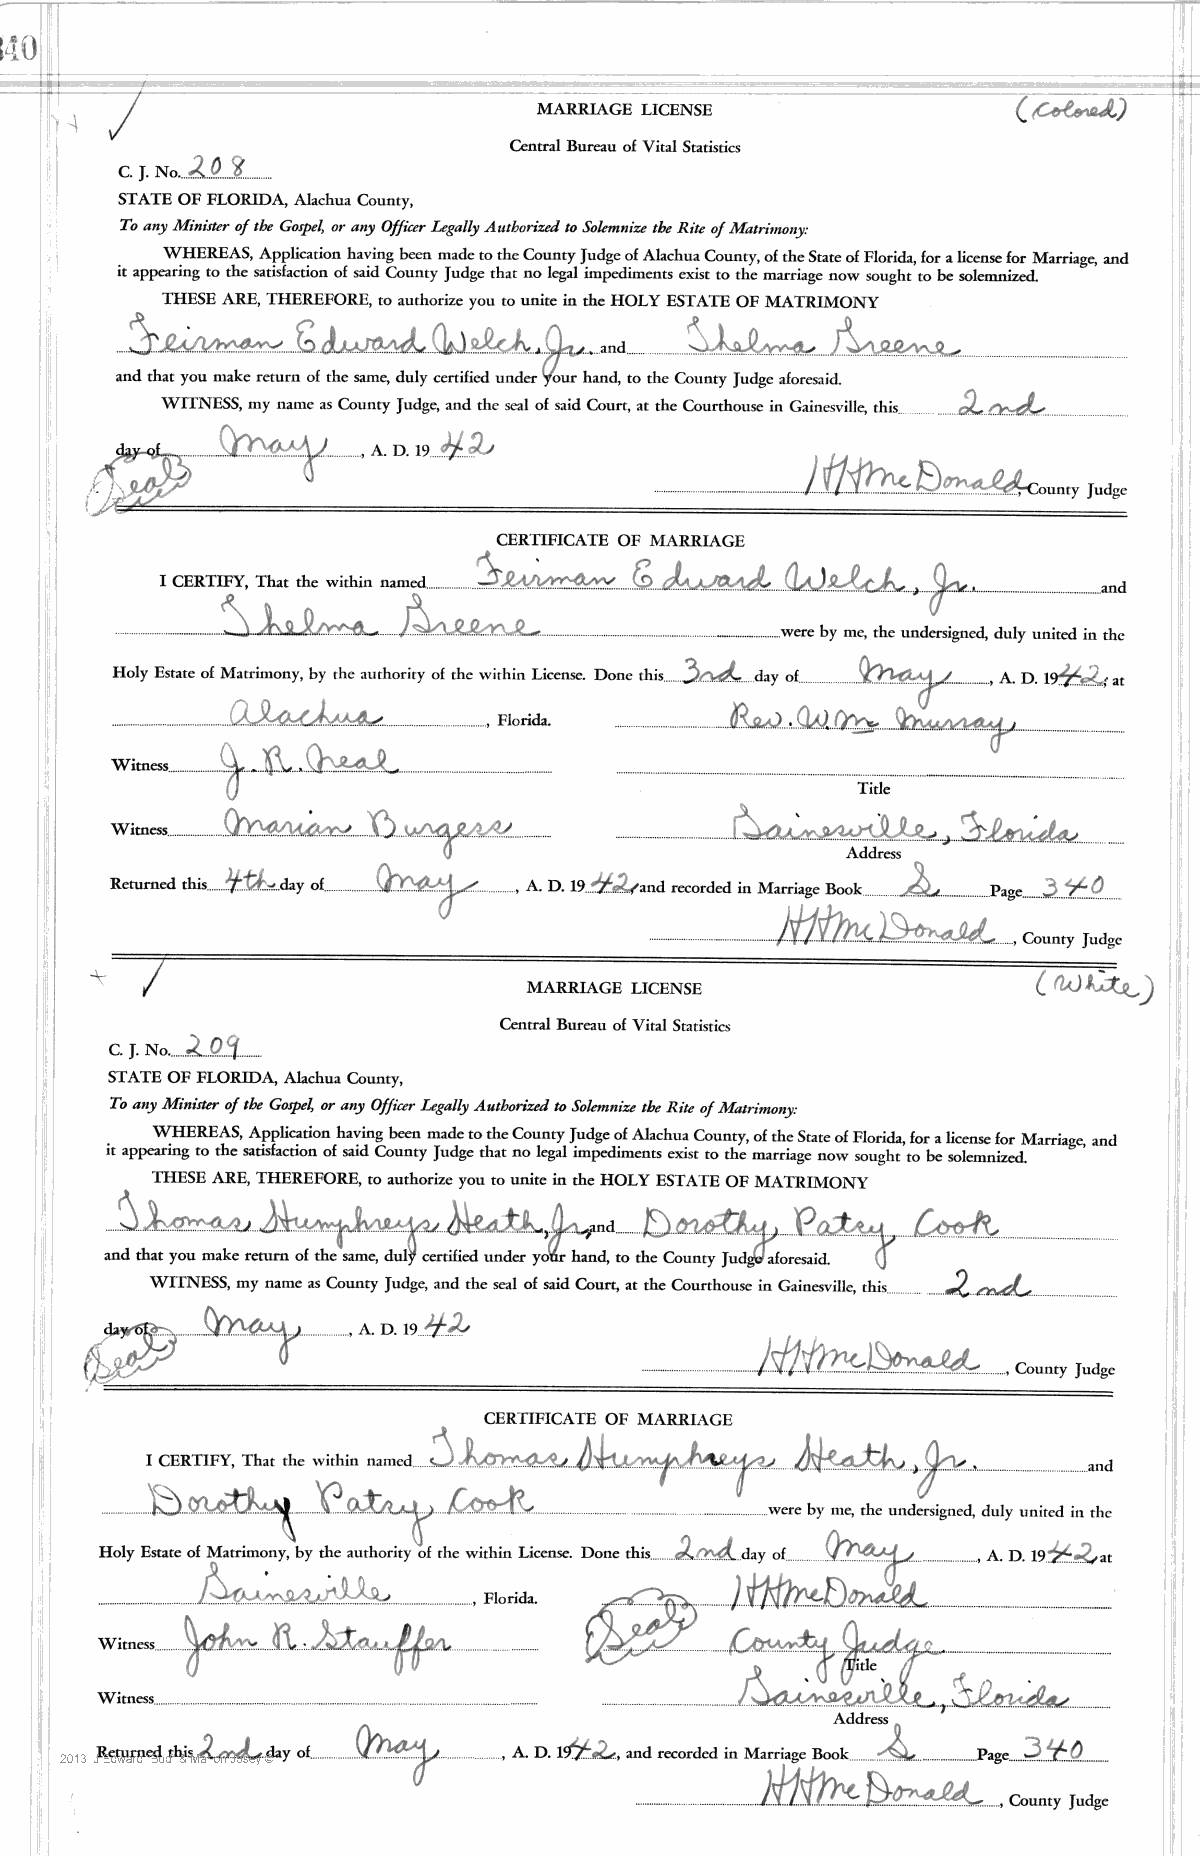 340
MARRIAGE LICENSE (Colored)
Central Bureau of Vital Statistics
C. J. No. 208
STATE OF FLORIDA, Alachua County,
To any Minister of the Gospel, or any Officer Legally Authorized to Solemnize the Rite of Matrimony:
WHEREAS, Application having been made to the County Judge of Alachua County, of the State of Florida, for a license for Marriage, and
it appearing to the satisfaction of said County Judge that no legal impediments exist to the marriage now sought to be solemnized.
THESE ARE, THEREFORE, to authorize you to unite in the HOLY ESTATE OF MATRIMONY
Feirman Edward Welch, Jr. and Thelma Greene
and that you make return of the same, duly certified under your hand, to the County Judge aforesaid.
WITNESS, my name as County Judge, and the seal of said Court, at the Courthouse in Gainesville, this 2nd
day of May, A. D. 19 42
(Seal) HHMcDonald, County Judge
CERTIFICATE OF MARRIAGE
I CERTIFY, That the within named Feirman Edward Welch, Jr. and
Thelma Greene were by me, the undersigned, duly united in the
Holy Estate of Matrimony, by the authority of the within License. Done this 3rd day of May, A. D. 1942, at
Alachua, Florida. Rev. W. Mc Murray
Witness J. R. Neal
Title
Witness Marian Burgess Gainesville, Florida
Address
Returned this 4th day of May, A. D. 19 42, and recorded in Marriage Book S Page 340
HHMcDonald, County Judge
MARRIAGE LICENSE (White)
Central Bureau of Vital Statistics
C. J. No. 209
STATE OF FLORIDA, Alachua County,
To any Minister of the Gospel, or any Officer Legally Authorized to Solemnize the Rite of Matrimony:
WHEREAS, Application having been made to the County Judge of Alachua County, of the State of Florida, for a license for Marriage, and
it appearing to the satisfaction of said County Judge that no legal impediments exist to the marriage now sought to be solemnized.
THESE ARE, THEREFORE, to authorize you to unite in the HOLY ESTATE OF MATRIMONY
Thomas Humphreys Heath, Jr, and Dorothy Patsy Cook
and that you make return of the same, duly certified under your hand, to the County Judge aforesaid.
WITNESS, my name as County Judge, and the seal of said Court, at the Courthouse in Gainesville, this 2nd
day of May, A. D. 19 42
(Seal) HHMcDonald, County Judge
CERTIFICATE OF MARRIAGE
I CERTIFY, That the within named Thomas Humphreys Heath, Jr. and
Dorothy Patsy Cook were by me, the undersigned, duly united in the
Holy Estate of Matrimony, by the authority of the within License. Done this 2nd day of May, A. D. 19 42, at
Gainesville, Florida. HHMcDonald
Witness John R. Stauffer (Seal) County Judge
Title
Witness Gainesville, Florida
Address
Returned this 2nd day of May, A. D. 1942, and recorded in Marriage Book S Page 340
HHMcDonald, County Judge